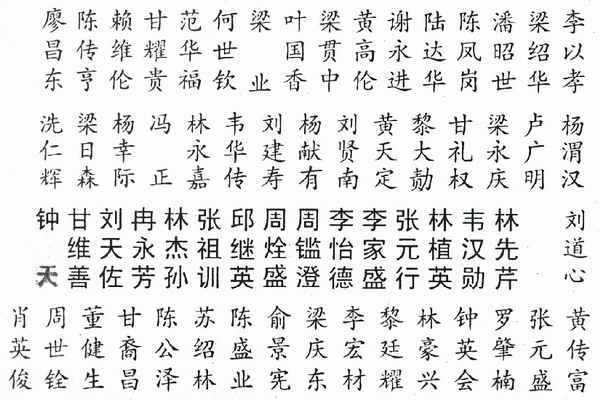 李以孝
梁绍华
潘昭世
陈凤岗
陆达华
谢永进
黄高伦
梁贯中
叶国香
梁业
何世钦
范华福
甘耀贵
赖维伦
陈传亨
廖昌东
杨渭汉
卢广明
梁永庆
甘礼权
黎大勋
黄天定
刘贤南
杨献有
刘建寿
韦华传
林永嘉
冯正
杨幸际
梁日森
洗仁辉
刘道心
林先芹
韦汉勋
林植英
张元行
李家盛
李怡德
周鑑澄
周烇盛
邱继英
张祖训
林杰孙
冉永芳
刘天佐
甘维善
钟天
黄传富
张元盛
罗肇楠
钟英会
林豪兴
黎廷耀
李宏材
梁庆东
俞景宪
陈盛业
苏绍林
陈公泽
甘裔昌
董健生
周世铨
肖英俊